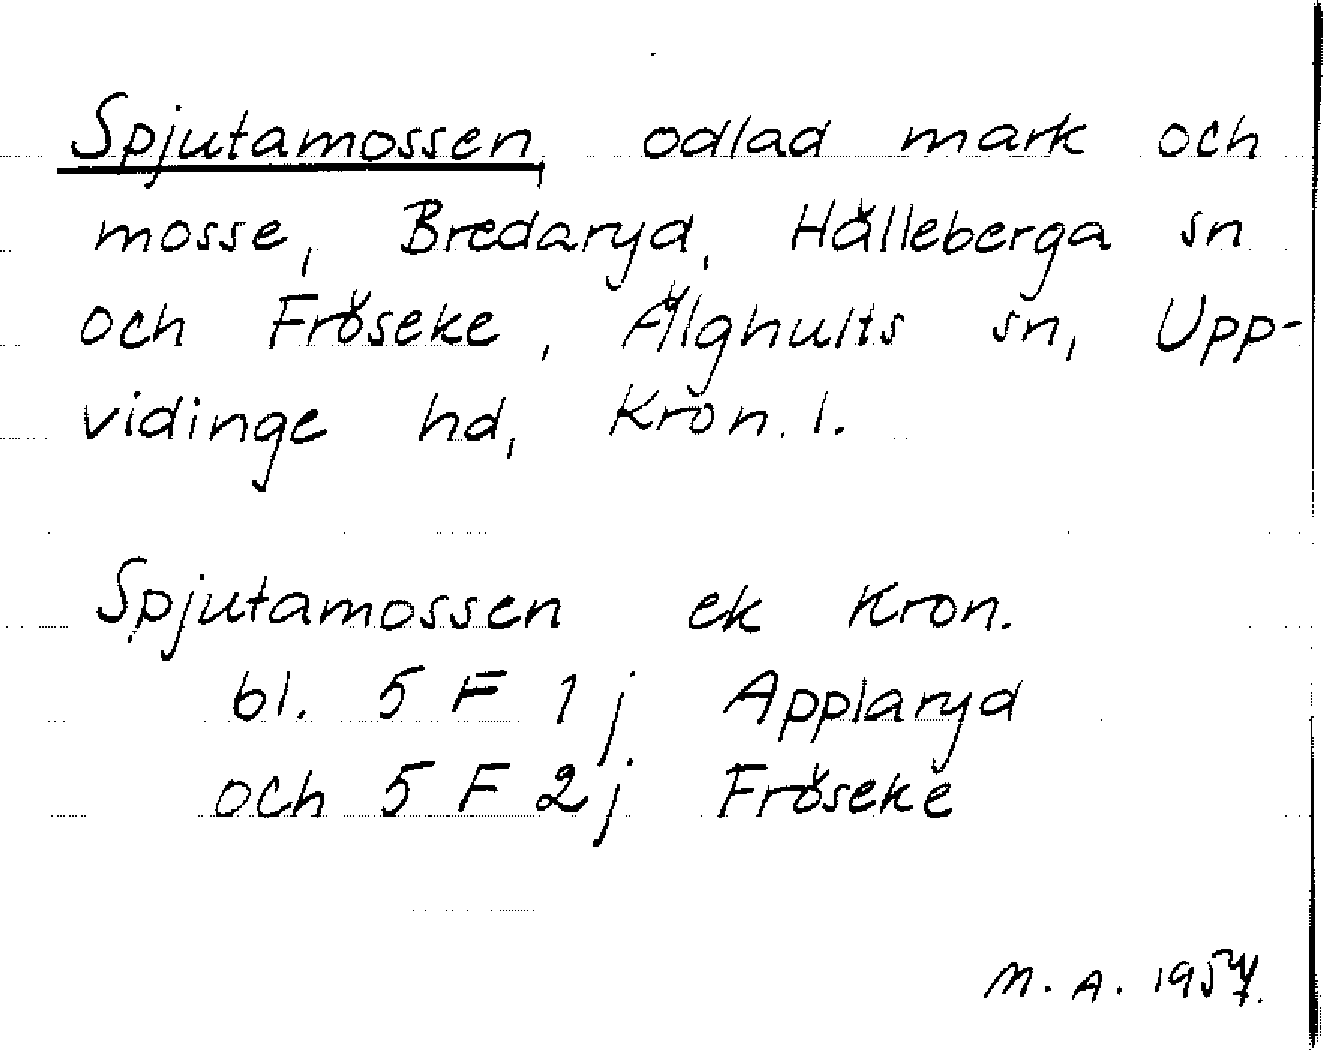 Spjutamossen, odlad mark och
mosse, Bredaryd, Hälleberga sn
och Fröseke, Älghults sn, Upp-
vidinge hd, Kron. l.
Spjutamossen ek Kron.
bl. 5 F 1 j Applaryd
och 5 F 2 j Fröseke
M. A. 1957.